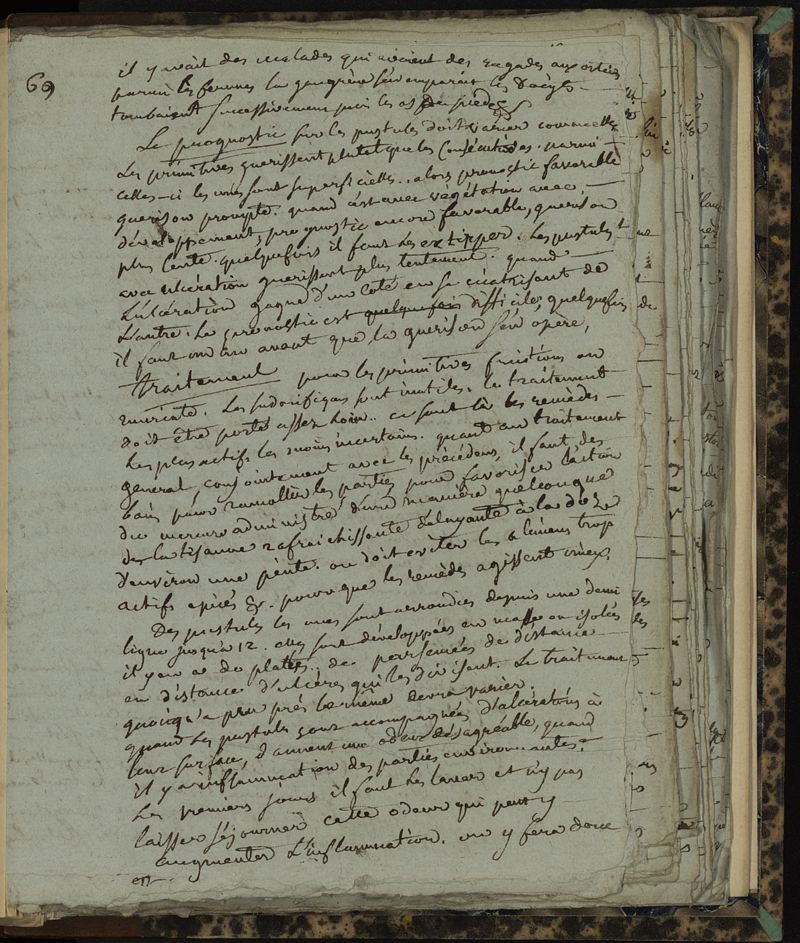 69
il y avait des malades qui avaient des ragades aux orteils
parmi les femmes la gangrène s'en emparait les doigts
tombaient successivement puis les os des pieds
Le prognostic sur les pustules doit varier
Les primitives guerissent plutot que les Consécutives. parmi
celles-ci les unes sont superficielles.. alors pronostic favorable
guerison prompte. quand c'est avec végétation avec
développement, prognostic encore favorable, guerison
plus lente. quelquefois il faut les extirper. Les pustules
avec ulcération guerissent plus lentement. quand
L'ulcération gagne d'un coté en se cicatrisant de
L'autre. Le pronostic est quelquefois difficile, quelquefois
il faut un an avant que la guerison s'en opère,
Traitement pour les primitives frictions ou
muriate. Les sudorifiques sont inutiles. le traitement
doit être porté assez loin.. ce sont là les remèdes
Les plus actifs les moins incertains. quand au traitement
general, conjointement avec les précédens, il faut des
bains pour ramollir les parties pour favoriser l'action
du mercure administré d'une manière quelconque
de la tisanne rafraichissante délayante à la dose
d'environ une peinte. on doit eviter les alimens trop
actifs epicés &. pour que les remèdes agissent mieux.
Des pustules les unes sont arrondies depuis une demi
ligne jusqu'a 12. elles sont développées en masse ou isolées
il y en a de plates.. de parsemées de distance
en distance d'ulcères qui les divisent. Le traitement
quoiqu'a peu près le même devra varier.
quand les pustules sont accompagnées d'ulcérations à
leur surface, donnent une odeur désagréable, quand
il y a inflammation des parties environnantes.
Les premiers jours il faut les laver et n'y pas
laisser séjourner cette odeur qui peut y
augmenter L'inflammation. on y fera donc